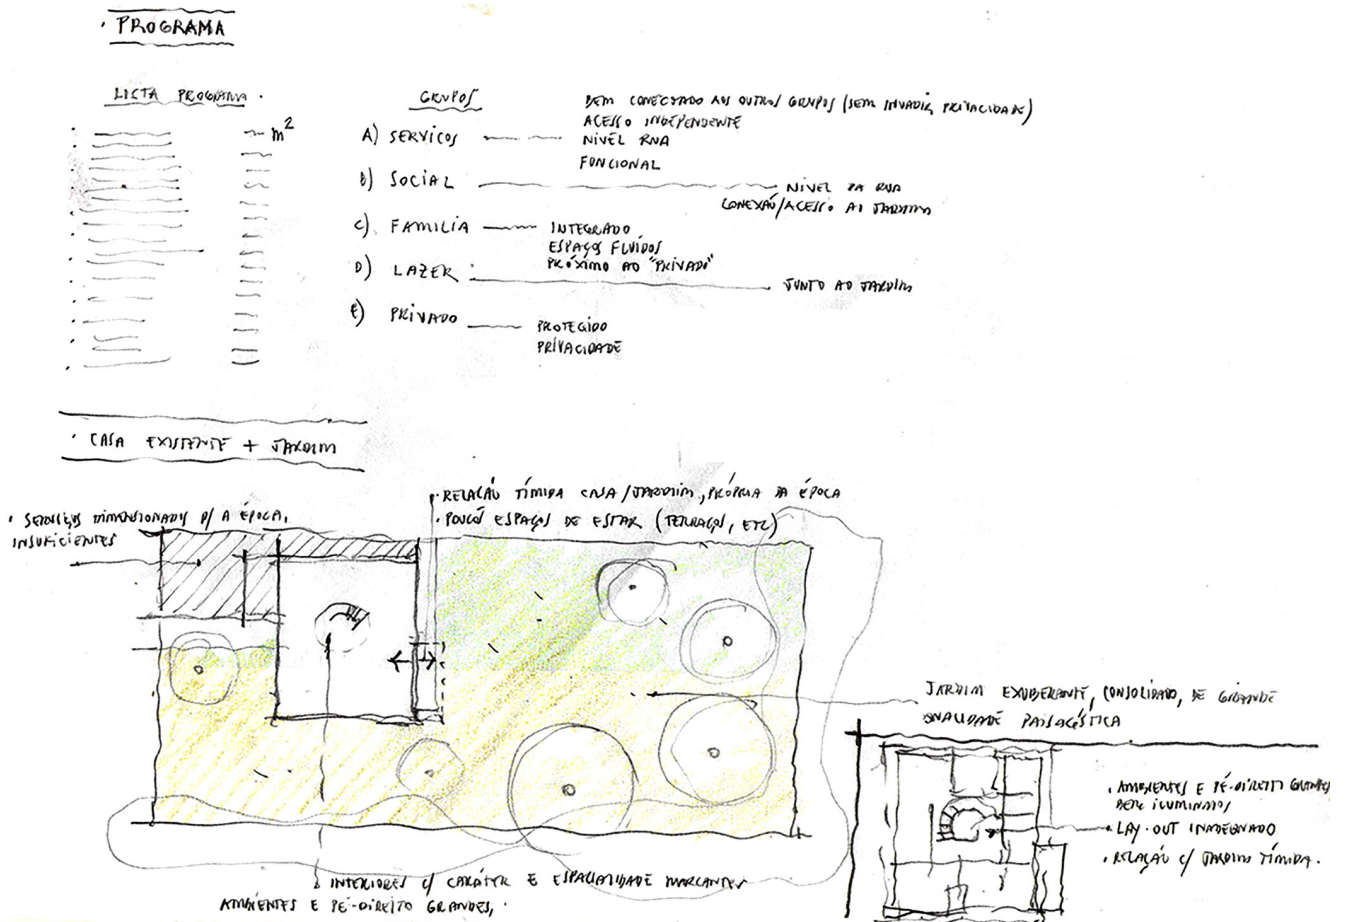 · PROGRAMA
LISTA PROGRAMA ·
m²
GRUPOS
BEM CONECTADO AOS OUTROS GRUPOS (SEM INVADIR PRIVACIDADE)
ACESSO INDEPENDENTE
A) SERVIÇOS
NÍVEL RUA
FUNCIONAL
B) SOCIAL
NÍVEL DA RUA
CONEXÃO/ACESSO AO JARDIM
C) FAMILIA
INTEGRADO
ESPAÇOS FLUÍDOS
PRÓXIMO AO "PRIVADO"
D) LAZER
JUNTO AO JARDIM
E) PRIVADO
PROTEGIDO
PRIVACIDADE
· CASA EXISTENTE + JARDIM
· RELAÇÃO TÍMIDA CASA/JARDIM, PRÓPRIA DA ÉPOCA
· POUCOS ESPAÇOS DE ESTAR (TERRAÇOS, ETC)
· SERVIÇOS DIMENSIONADOS P/ A ÉPOCA,
INSUFICIENTES
JARDIM EXUBERANTE, CONSOLIDADO, DE GRANDE
QUALIDADE PAISAGÍSTICA
· AMBIENTES E PÉ-DIREITO GRANDES
BEM ILUMINADOS
· LAY-OUT INADEQUADO
· RELAÇÃO C/ JARDIM TÍMIDA.
INTERIORES C/ CARÁTER E ESPACIALIDADE MARCANTES
AMBIENTES E PÉ-DIREITO GRANDES,